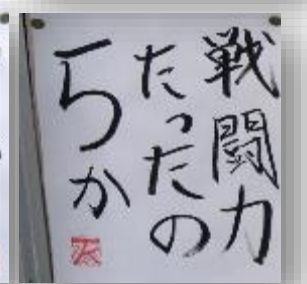 戦闘力
たったの
5か